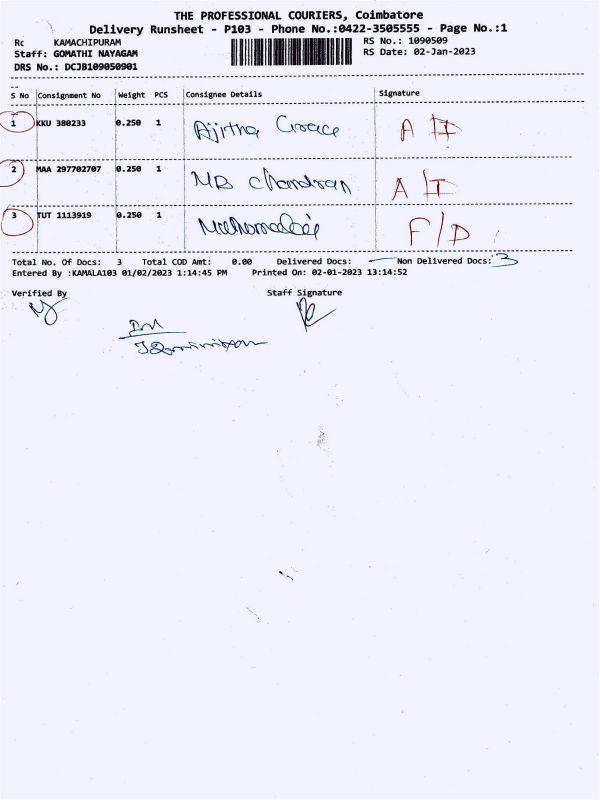 THE PROFESSIONAL COURIERS, Coimbatore
Delivery Runsheet - P103 - Phone No.:0422-3505555 - Page No.:1
Rc KAMACHIPURAM RS No.: 1090509
Staff: GOMATHI NAYAGAM RS Date: 02-Jan-2023
DRS No.: DCJB109050901
S No Consignment No Weight PCS Consignee Details Signature
1 KKU 380233 0.250 1 Ajitha Grace A
2 MAA 297702707 0.250 1 MB Chandran A/I
3 TUT 1113919 0.250 1 F/D
Total No. Of Docs: 3 Total COD Amt: 0.00 Delivered Docs: — Non Delivered Docs: 3
Entered By :KAMALA103 01/02/2023 1:14:45 PM Printed On: 02-01-2023 13:14:52
Verified By Staff Signature